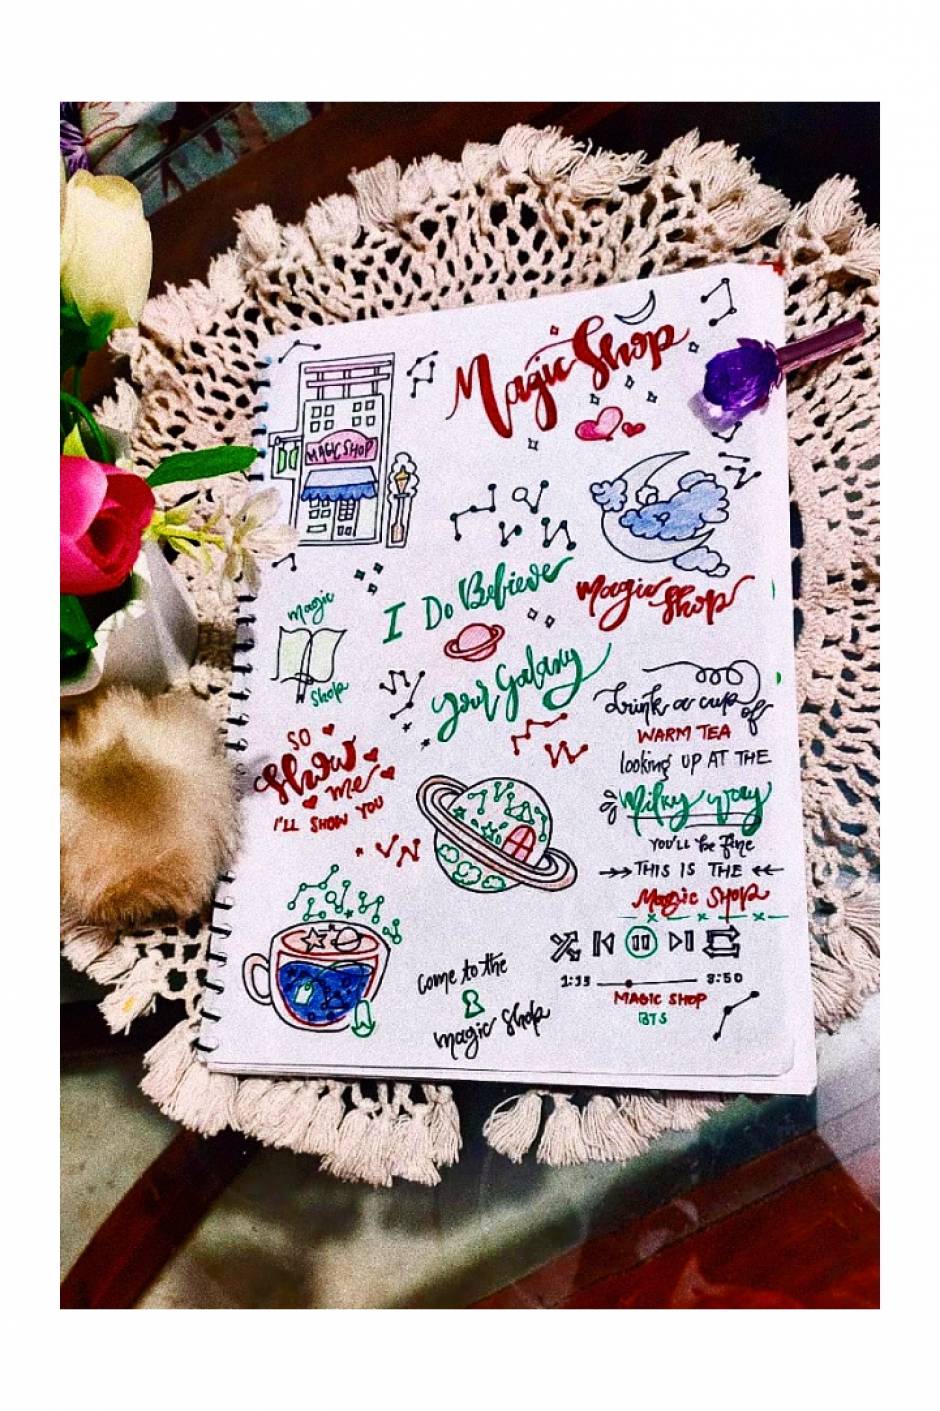 Magic Shop
MAGIC SHOP
I Do Believe
your Galaxy
Magic
Shop
Magic
Shop
SO
Show
me
I'LL SHOW YOU
Drink a cup of
WARM TEA
looking UP AT THE
Milky way
YOU'll be fine
THIS IS THE
Magic SHOP
come to the
magic shop
1:33 3:50
MAGIC SHOP
BTS